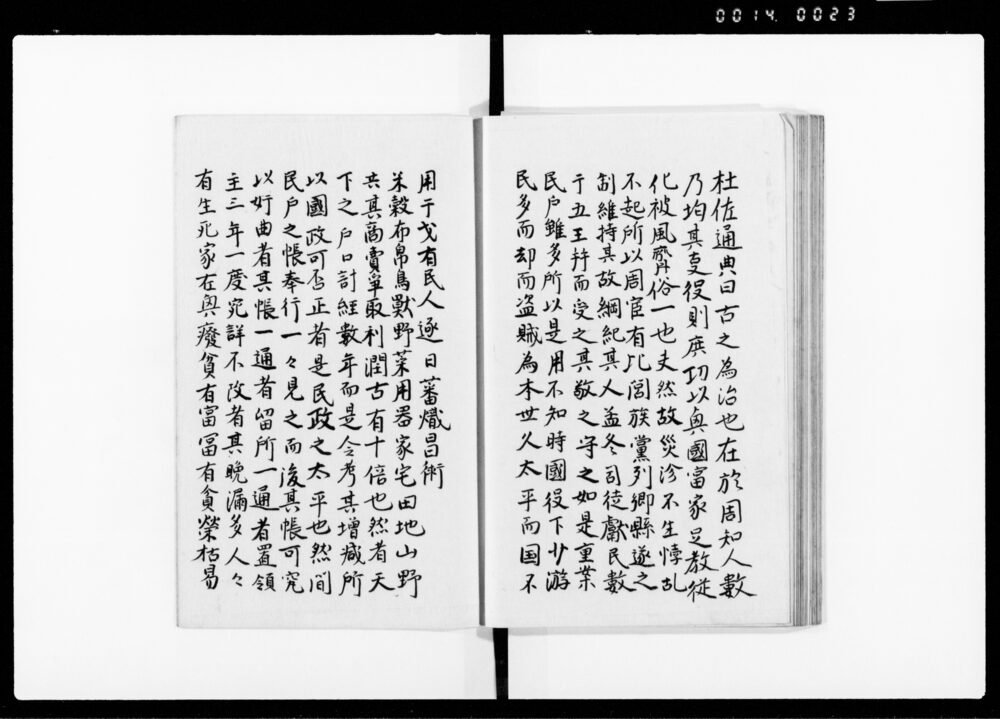 0014 0023
杜佐通典曰古之為治也在於周知人數
乃均其叓役則庶功以興國富家足教從
化被風齊俗一也夫然故災沴不生悖乱
不起所以周官有比閭族黨列卿縣遂之
制維持其故綱紀其人孟冬司徒獻民數
于五王拜而受之其敬之守之如是重業
民戶雖多所以是用不知時國役下少游
民多而却而盗賊為本世久太平而国不
用干戈有民人逐日蕃熾昌術
米穀布帛鳥獸野菜用器家宅田地山野
共其商賣單取利潤古有十倍也然者天
下之戶口計經數年而是令考其增减所
以國政可否正者是民政之太平也然間
民戶之帳奉行一々見之而後其帳可究
以奸曲者其帳一通者留所一通者置領
主三年一度宛詳不改者其晩漏多人々
有生死家在興癈貧有富冨有貪榮枯易